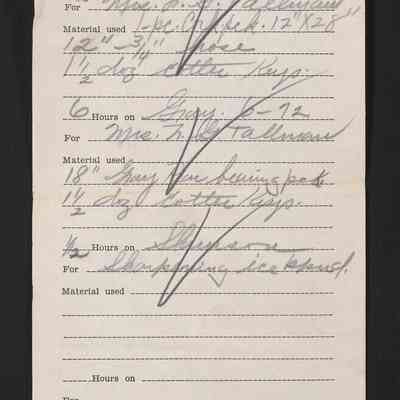 For Mrs. F. G. Tallman
Material used 1-pc. 12" X 28"
12" - 3/4" hose
1 1/2 doz cotter Keys.
6 Hours on Gray. 6-72
For Mrs. F. G. Tallman
Material used
18" Gray
1 1/2 doz cotter Keys.
1/2 Hours on Stimson
For Sharpening ice
Material used
Hours on
For